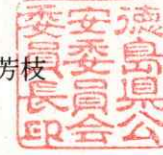 芳枝
徳島県公
安委員会
委員長印